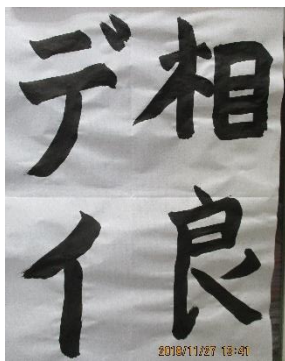 相良
デイ
2018/11/27 13:41